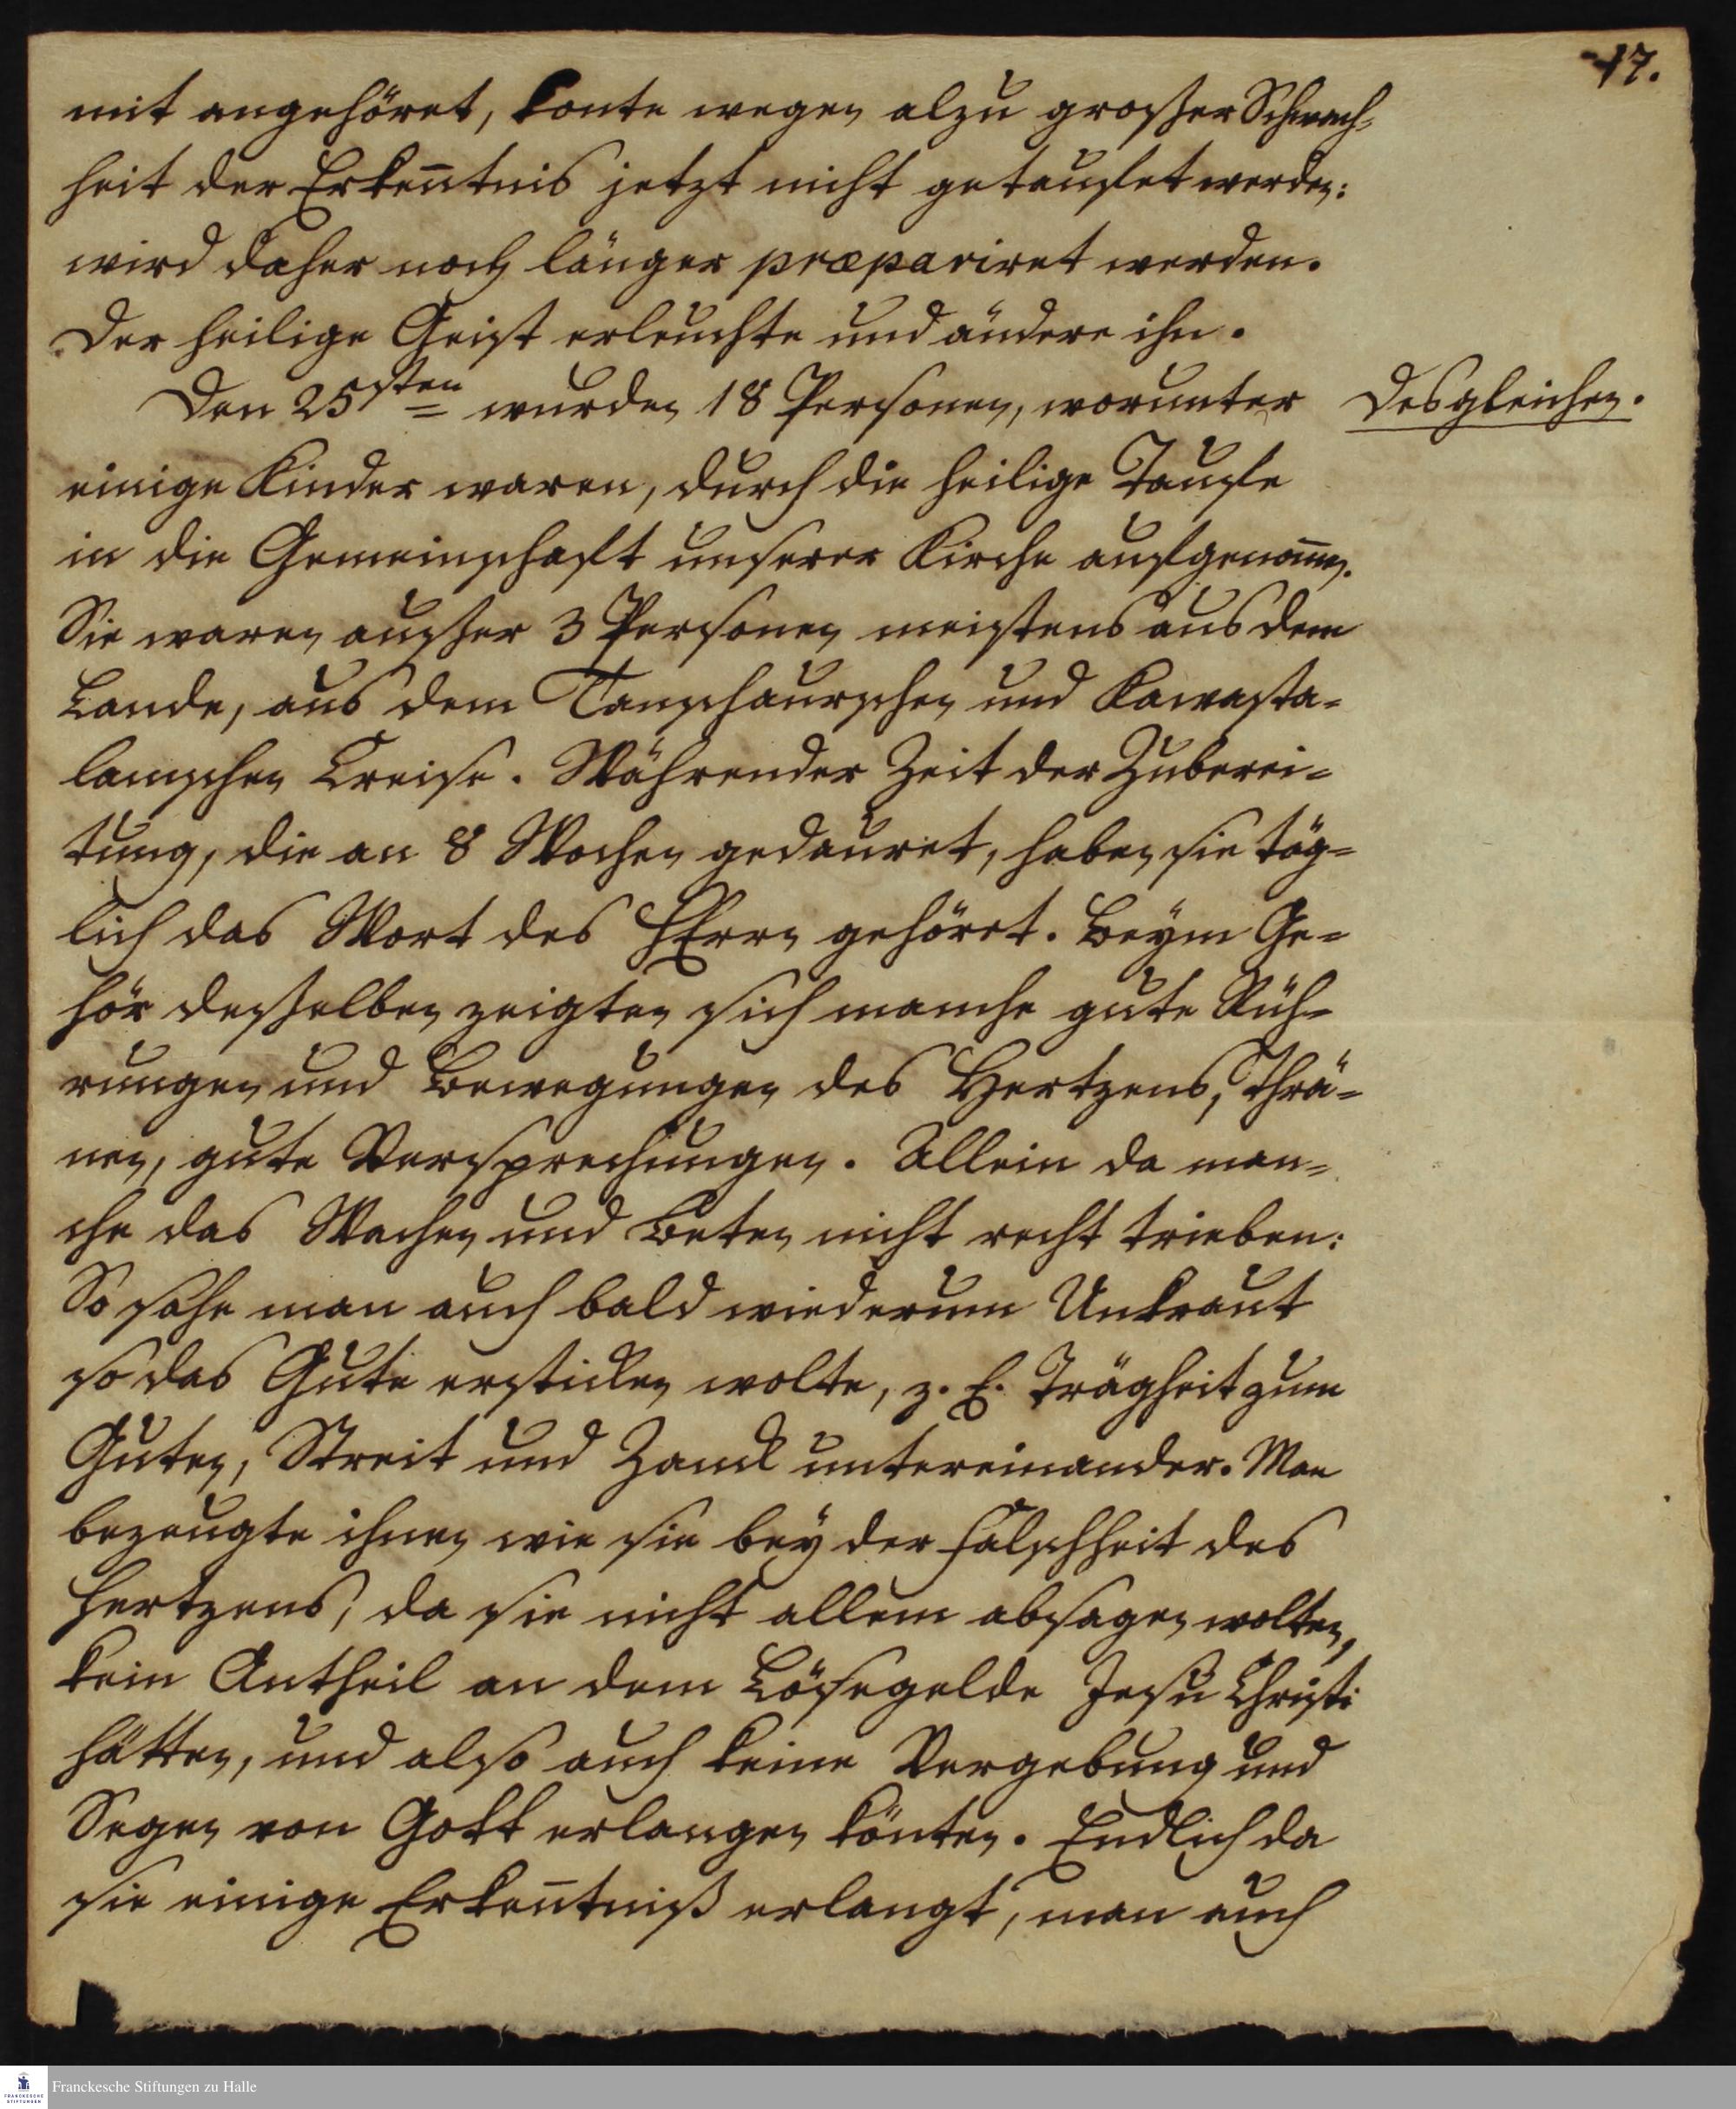 17.
mit angehöret, konte wegen alzu großer Schwach-
heit der Erken̄tnis jetzt nicht getauffet werden:
wird daher noch länger præpariret werden.
Der heilige Geist erleuchte und ändere ihn.
Den 25sten wurden 18 Personen, worunter
Desgleichen.
einige Kinder waren, durch die heilige Tauffe
in die Gemeinschafft unserer Kirche auffgenom̄en.
Sie waren ausser 3 Personen meistens aus dem
Lande, aus dem Tanschaurschen und Kawasta-
lamschen Creise. Währender Zeit der Zuberei-
tung, die an 8 Wochen gedauret, haben sie täg-
lich das Wort des HErrn gehöret. Beym Ge-
hör desselben zeigten sich manche gute Rüh-
rungen und Bewegungen des Hertzens, Thrä-
nen, gute Versprechungen. Allein da man-
che das Wachen und Beten nicht recht trieben:
So sahe man auch bald wiederum Unkraut
so das Gute ersticken wolte, z. E. Trägheit zum
Guten, Streit und Zanck untereinander. Man
bezeugte ihnen wie sie bey der Falschheit des
Hertzens, da sie nicht allem absagen wolten,
kein Antheil an dem Lösegelde Jesu Christi
hätten, und also auch keine Vergebung und
Segen von Gott erlangen könten. Endlich da
sie einige Erken̄tniß erlangt, man auch
Franckesche Stiftungen zu Halle